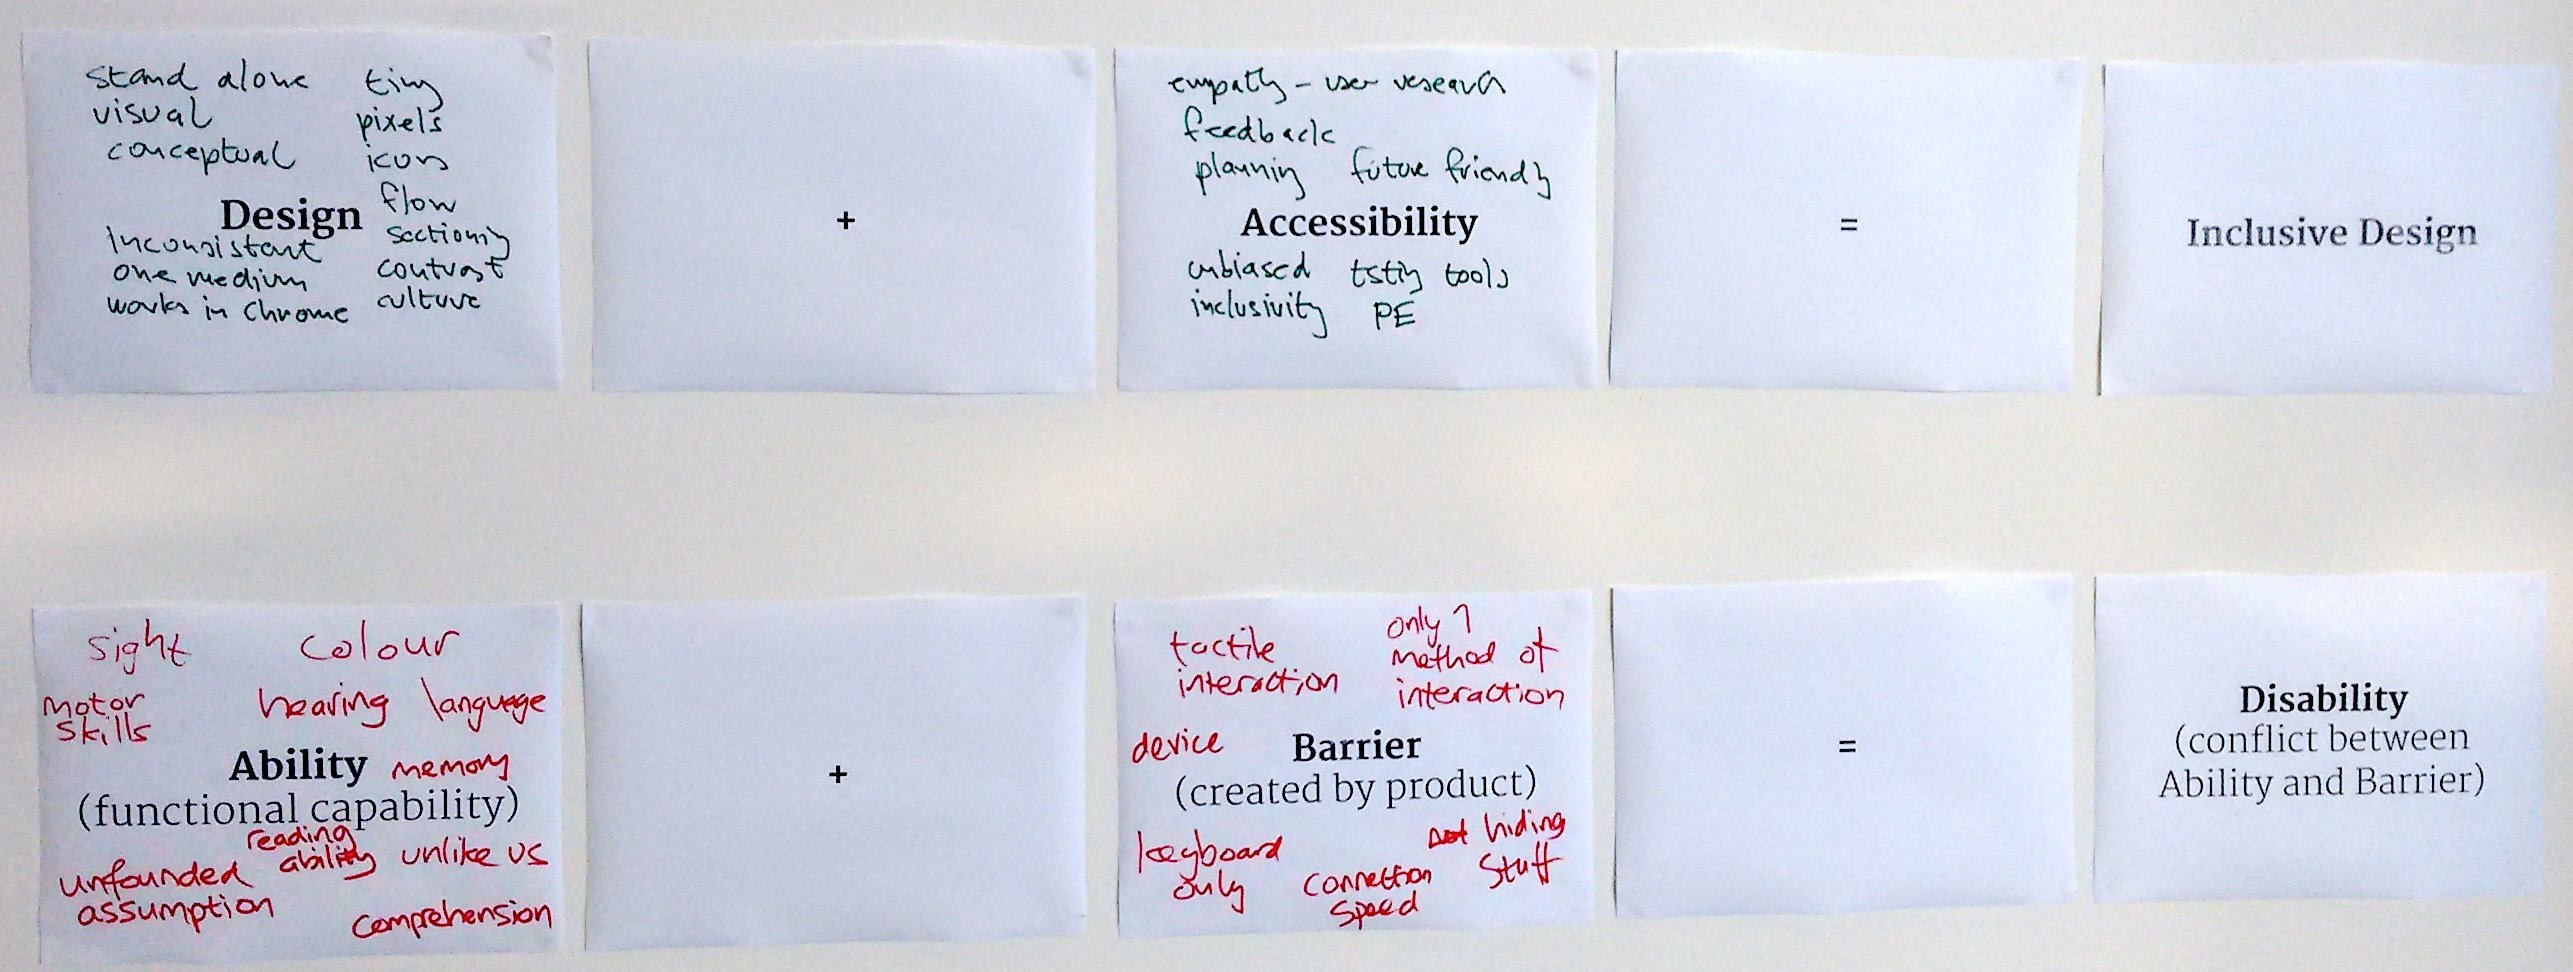 stand alone
visual
conceptual
tiny
pixels
icons
flow
Design
Inconsistent
one medium
works in Chrome
sectioning
contrast
culture
+
empathy - user research
feedback
planning future friendly
Accessibility
unbiased tstig tools
inclusivity PE
=
Inclusive Design
sight colour
motor
skills
hearing language
Ability memory
(functional capability)
reading
ability
unlike us
unfounded
assumption
comprehension
+
tactile
interaction
only 1
method of
interaction
device
Barrier
(created by product)
keyboard
only
connection
speed
hiding
stuff
=
Disability
(conflict between
Ability and Barrier)